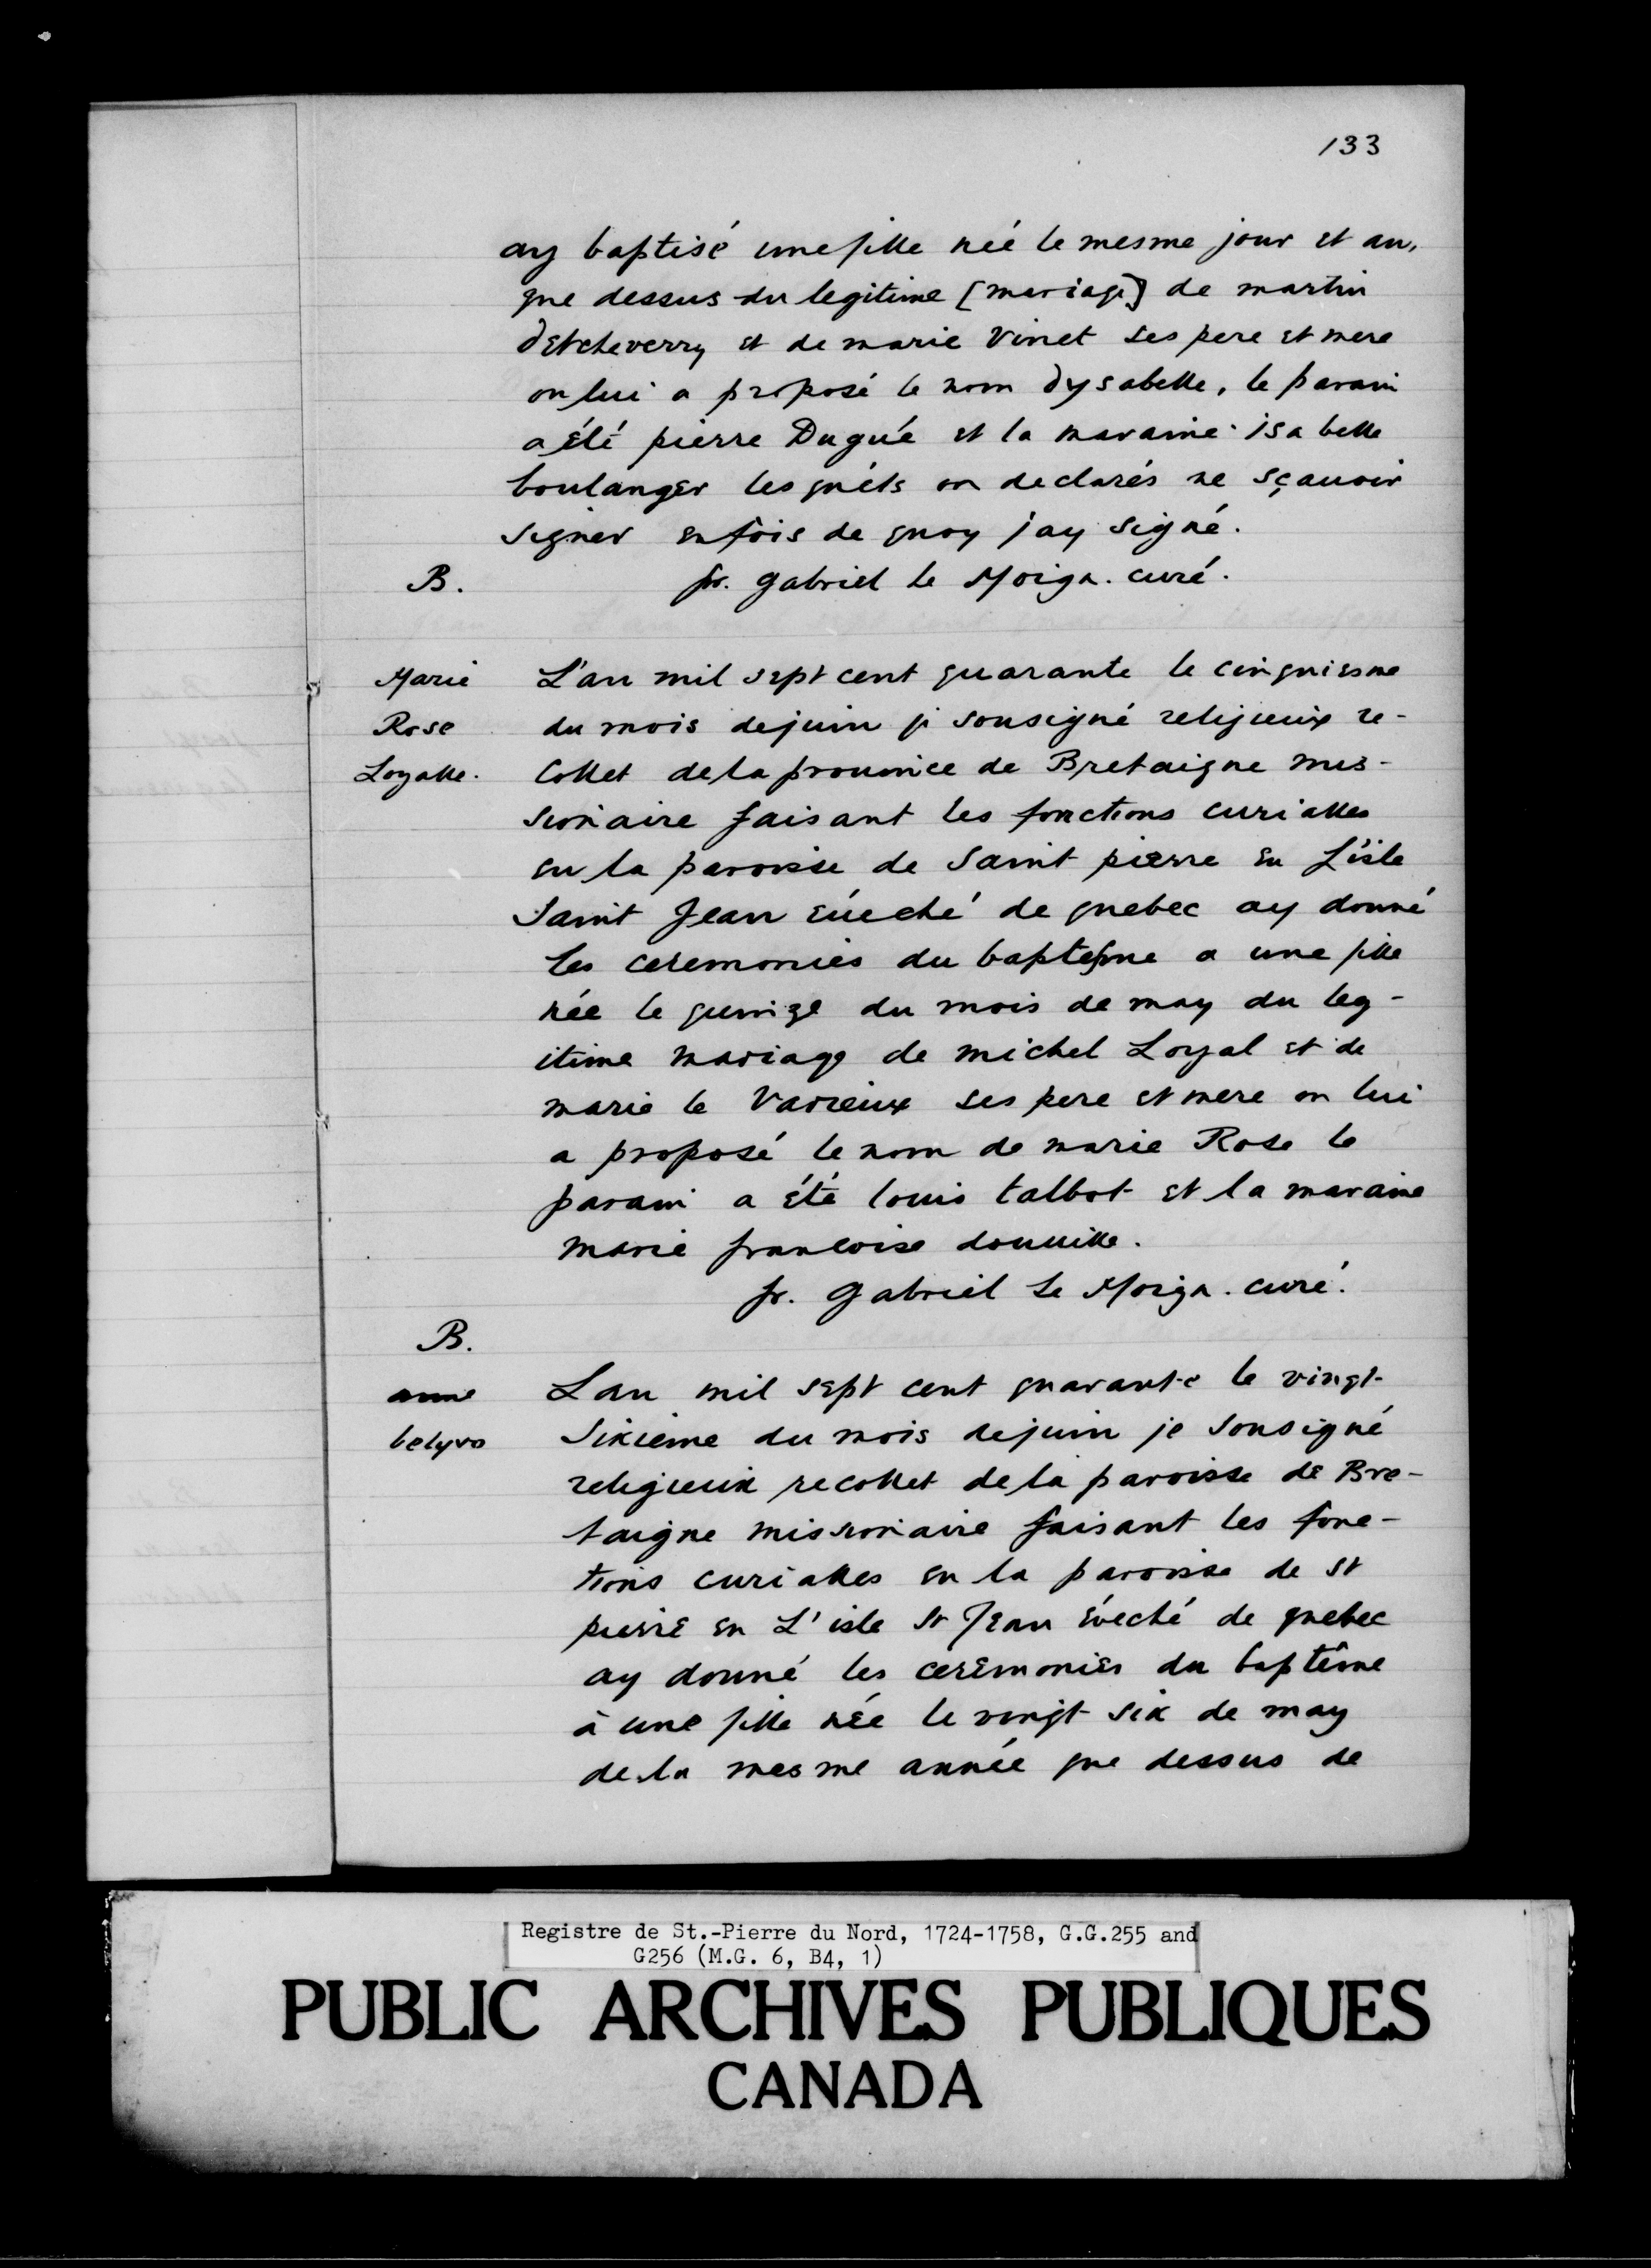 133
ay baptisé une fille née le mesme jour et an,
que dessus du legitime [mariage] de martin
detcheverry et de marie Vinet ses pere et mere
on lui a proposé le nom dysabelle, le parain
a été pierre Dugué et la maraine isabelle
boulanger lesquéls on declarés ne sçauoir
signer enfois de quoy jay signé.
B. fr. gabriel le Moign. curé.
Marie L'an mil sept cent quarante le cinquiesme
Rose du mois dejuin je sousigné religieux re-
Loyalle. collet de la prouince de Bretaigne mis-
sionaire faisant les fonctions curialles
en la paroisse de Saint pierre en L'isle
Saint Jean éueché de quebec ay donné
les ceremonies du baptesme a une fille
née le quinze du mois de may du leg-
itime mariage de michel Loyal et de
marie le Vavieux ses pere et mere on lui
a proposé le nom de marie Rose le
parain a été louis talbot et la maraine
marie francoise douuille.
fr. Gabriel Le Moign. curé.
B.
anne Lan mil sept cent quarante le vingt-
belyvo Sixieme du mois dejuin je sousigné
religieux recollet de la paroisse de Bre-
taigne missionaire faisant les fonc-
tions curialles en la paroisse de St
pierre en L'isle St Jean évêché de quebec
ay donné les ceremonies du baptême
à une fille née le vingt six de may
de la mesme année que dessus de
Registre de St.-Pierre du Nord, 1724-1758, G.G.255 and
G256 (M.G. 6, B4, 1)
PUBLIC ARCHIVES PUBLIQUES
CANADA